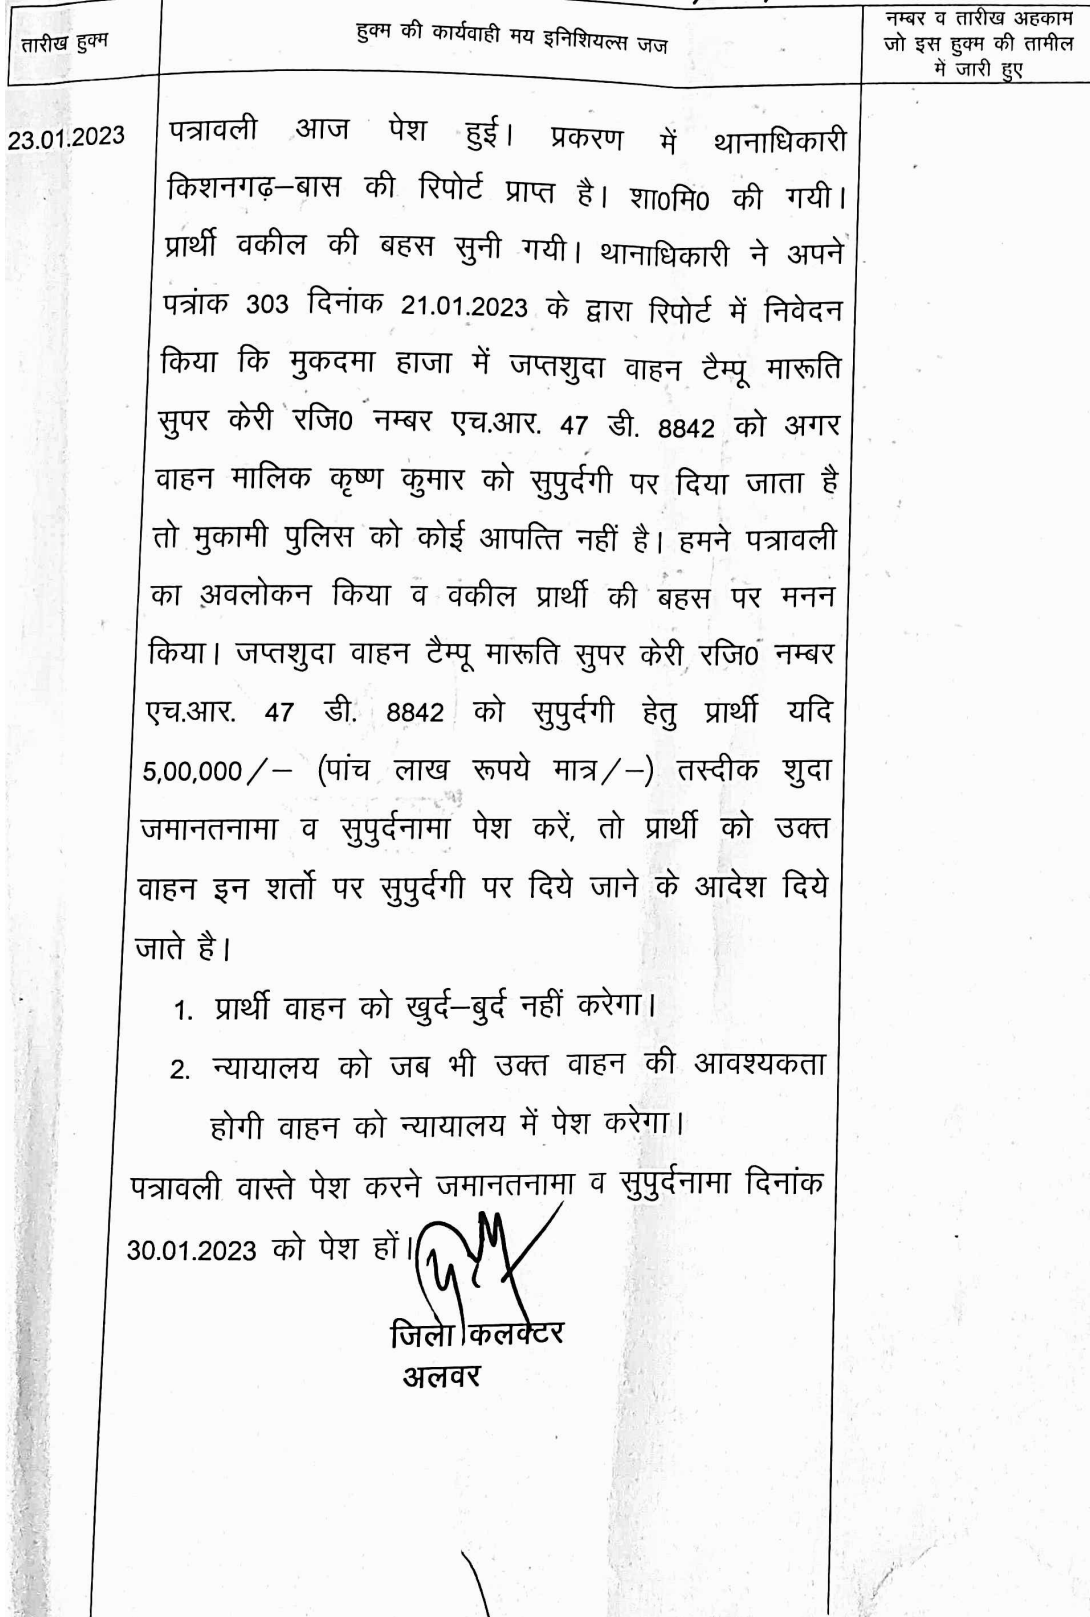 तारीख हुक्म
हुक्म की कार्यवाही मय इनिशियल्स जज
नम्बर व तारीख अहकाम
जो इस हुक्म की तामील
में जारी हुए
23.01.2023
पत्रावली आज पेश हुई। प्रकरण में थानाधिकारी
किशनगढ़–बास की रिपोर्ट प्राप्त है। शा0मि0 की गयी।
प्रार्थी वकील की बहस सुनी गयी। थानाधिकारी ने अपने
पत्रांक 303 दिनांक 21.01.2023 के द्वारा रिपोर्ट में निवेदन
किया कि मुकदमा हाजा में जप्तशुदा वाहन टैम्पू मारूति
सुपर केरी रजि0 नम्बर एच.आर. 47 डी. 8842 को अगर
वाहन मालिक कृष्ण कुमार को सुपुर्दगी पर दिया जाता है
तो मुकामी पुलिस को कोई आपत्ति नहीं है। हमने पत्रावली
का अवलोकन किया व वकील प्रार्थी की बहस पर मनन
किया। जप्तशुदा वाहन टैम्पू मारूति सुपर केरी रजि0 नम्बर
एच.आर. 47 डी. 8842 को सुपुर्दगी हेतु प्रार्थी यदि
5,00,000/– (पांच लाख रूपये मात्र/–) तस्दीक शुदा
जमानतनामा व सुपुर्दनामा पेश करें, तो प्रार्थी को उक्त
वाहन इन शर्तो पर सुपुर्दगी पर दिये जाने के आदेश दिये
जाते है।
1. प्रार्थी वाहन को खुर्द–बुर्द नहीं करेगा।
2. न्यायालय को जब भी उक्त वाहन की आवश्यकता
होगी वाहन को न्यायालय में पेश करेगा।
पत्रावली वास्ते पेश करने जमानतनामा व सुपुर्दनामा दिनांक
30.01.2023 को पेश हों।
जिला कलक्टर
अलवर